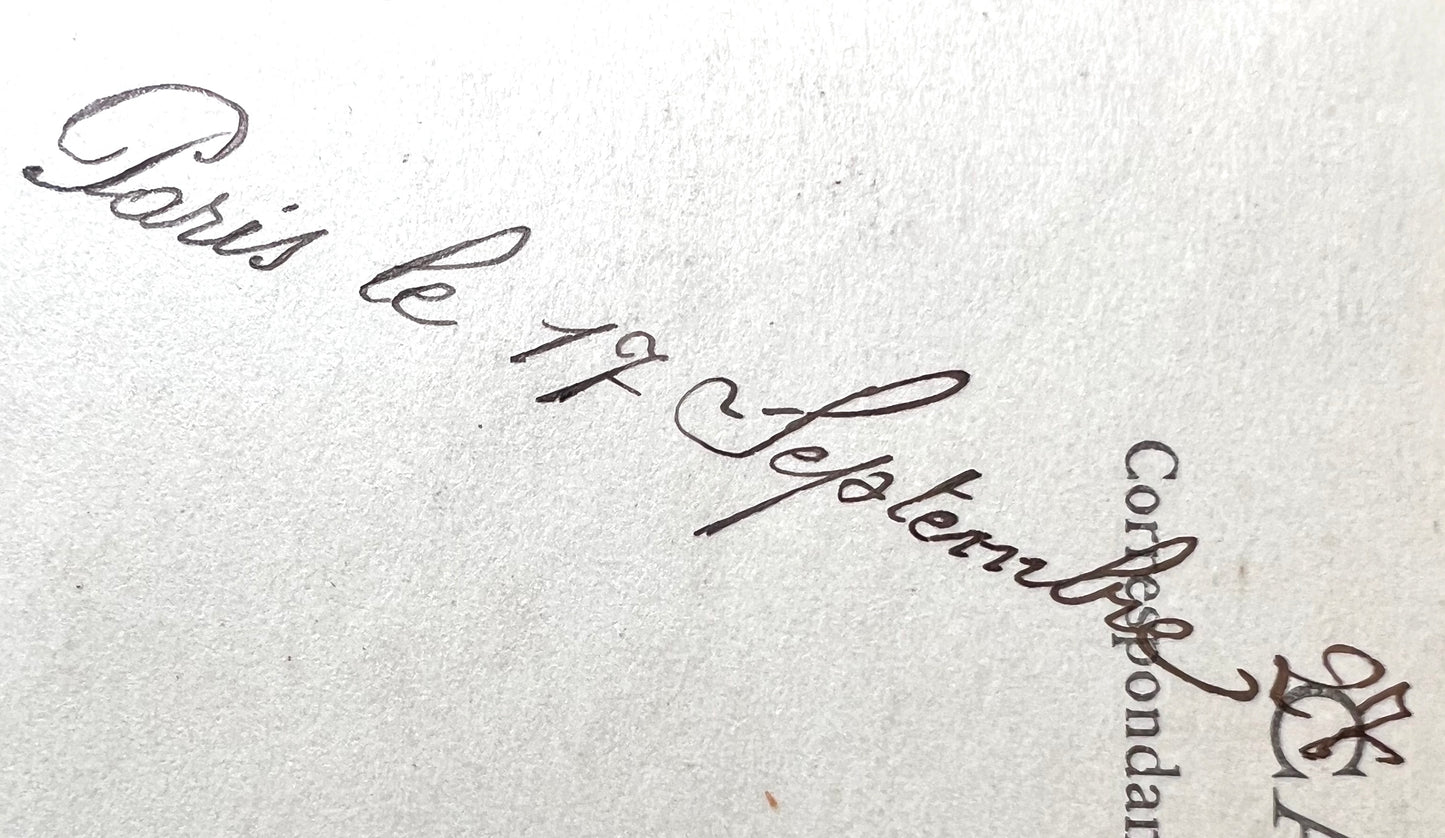 Paris le 17 Septembre
Correspondan
CA